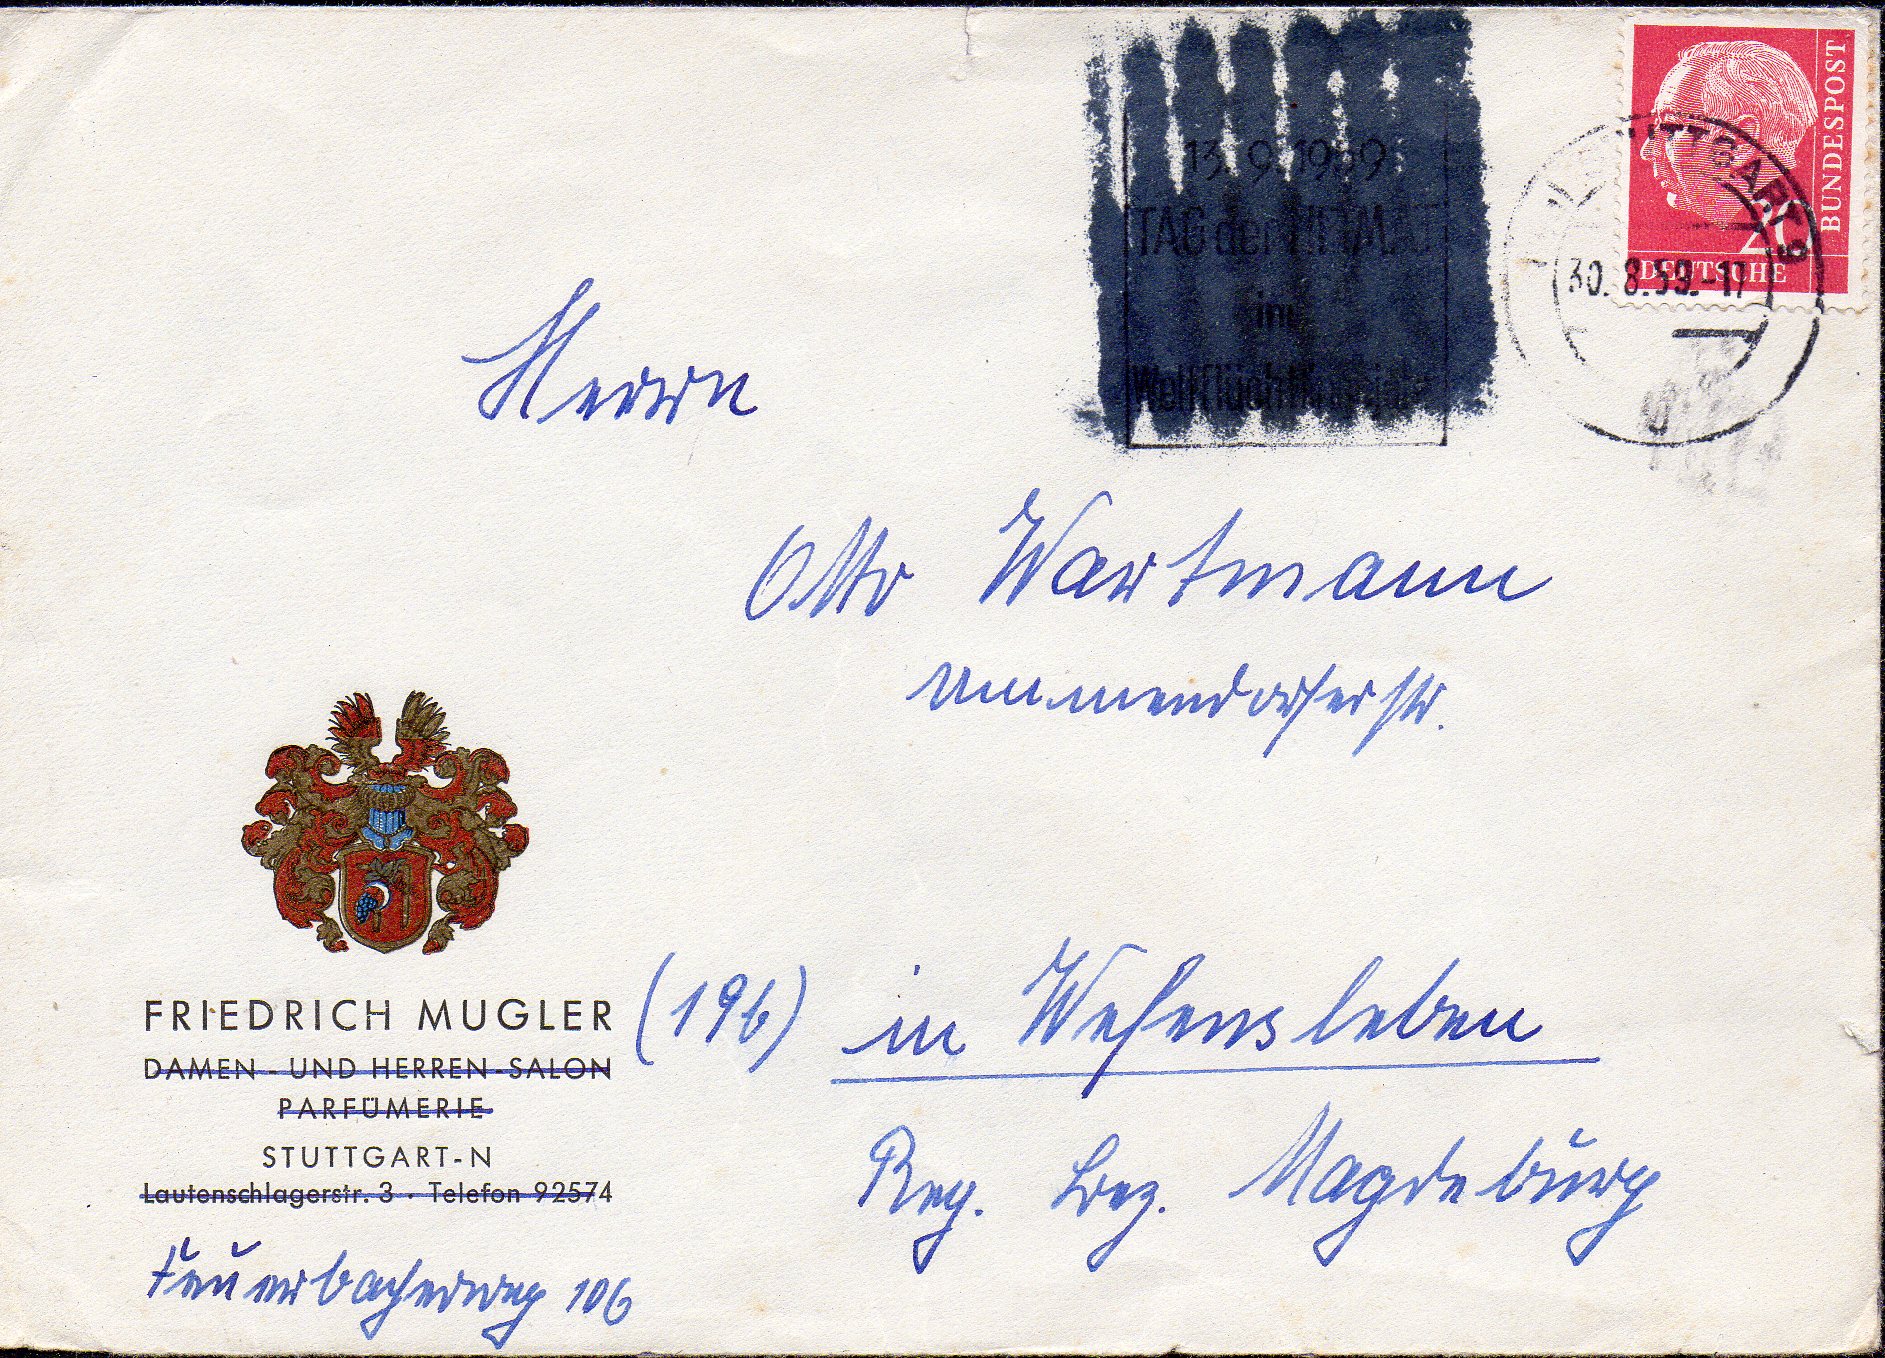 13.9.1959
TAG der HEIMAT
im
Weltflüchtlingsjahr
STUTTGART 9
30.8.59.-17
20
DEUTSCHE
BUNDESPOST
Herrn
Otto Wartmann
Ummendorferstr.
(19b) in Wefensleben
Reg. Bez. Magdeburg
FRIEDRICH MUGLER
DAMEN-UND HERREN-SALON
PARFÜMERIE
STUTTGART-N
Lautenschlagerstr. 3 · Telefon 92574
Feuerbacherweg 106